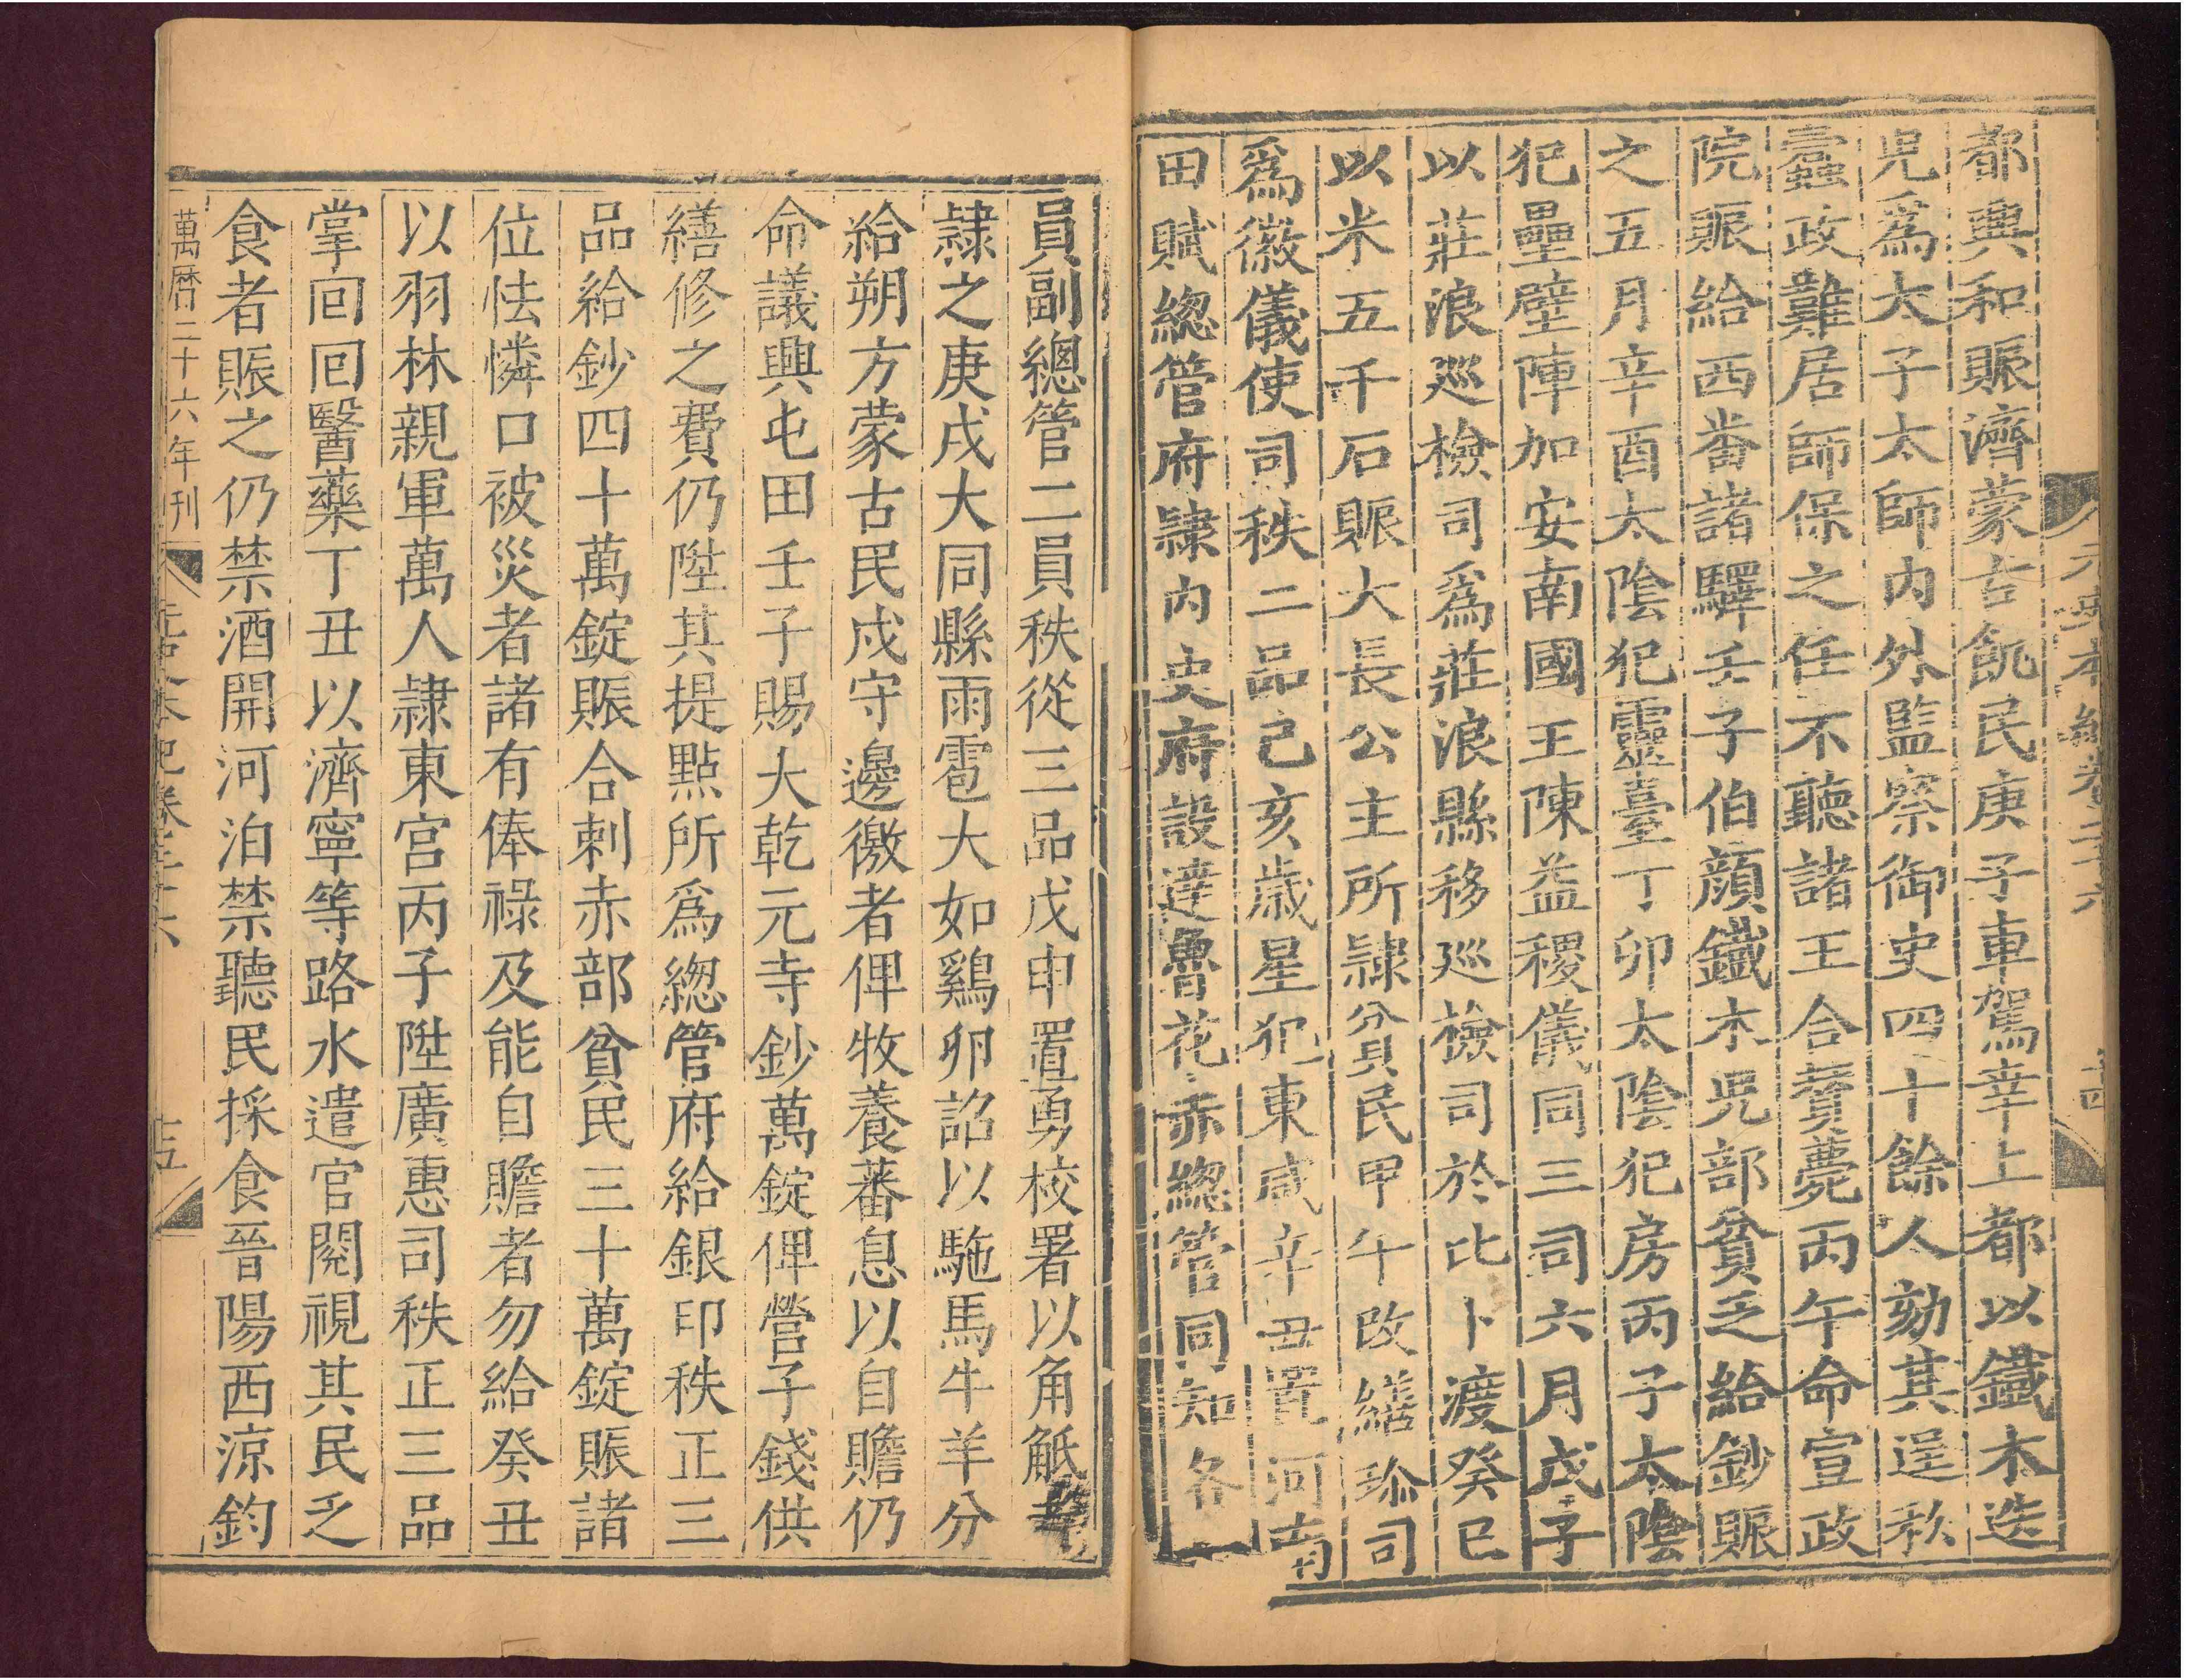 元史本紀卷二十六 十四
都興和賑濟蒙古飢民庚子車駕幸上都以鐵木迭
兒爲太子太師内外監察御史四十餘人劾其逞私
蠹政難居師保之任不聽諸王合贊薨丙午命宣政
院賑給西番諸驛壬子伯顔鐵木兒部貧乏給鈔賑
之五月辛酉太陰犯靈臺丁卯太陰犯房丙子太陰
犯壘壁陣加安南國王陳益稷儀同三司六月戊子
以莊浪巡檢司爲莊浪縣移巡檢司於比卜渡癸巳
以米五千石賑大長公主所隷貧民甲午改繕珍司
爲徽儀使司秩二品己亥歲星犯東咸辛丑置河南
田賦緫管府隷内史府設達魯花赤緫管同知各一
員副總管二員秩從三品戊申置勇校署以角觝者
隷之庚戌大同縣雨雹大如鷄卵詔以駞馬牛羊分
給朔方蒙古民戍守邊徼者俾牧養蕃息以自贍仍
命議興屯田壬子賜大乾元寺鈔萬錠俾營子錢供
繕修之費仍陞其提點所爲緫管府給銀印秩正三
品給鈔四十萬錠賑合剌赤部貧民三十萬錠賑諸
位怯憐口被災者諸有俸禄及能自贍者勿給癸丑
以羽林親軍萬人隷東宫丙子陞廣惠司秩正三品
掌回回醫藥丁丑以濟寧等路水遣官閱視其民乏
食者賑之仍禁酒開河泊禁聽民採食晉陽西涼鈞
萬曆二十六年刊 元史本紀卷二十六 十五